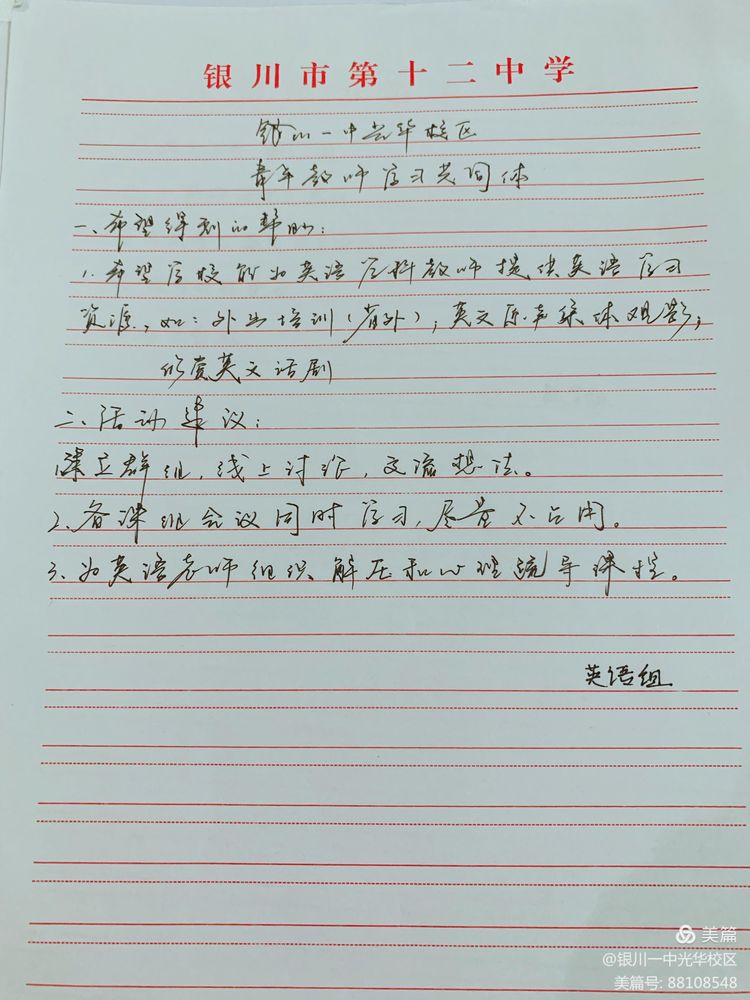 银川市第十二中学
银川一中光华校区
青年教师学习共同体
一、希望得到的帮助:
1. 希望学校能为英语学科教师提供英语学习
资源,如:外出培训(省外);英文原声媒体观影;
欣赏英文话剧
二、活动建议:
建立群组,线上讨论,交流想法。
2、备课组会议同时学习,尽量不占用。
3、为英语老师组织解压和心理疏导课程。
英语组
美篇
@银川一中光华校区
美篇号: 88108548